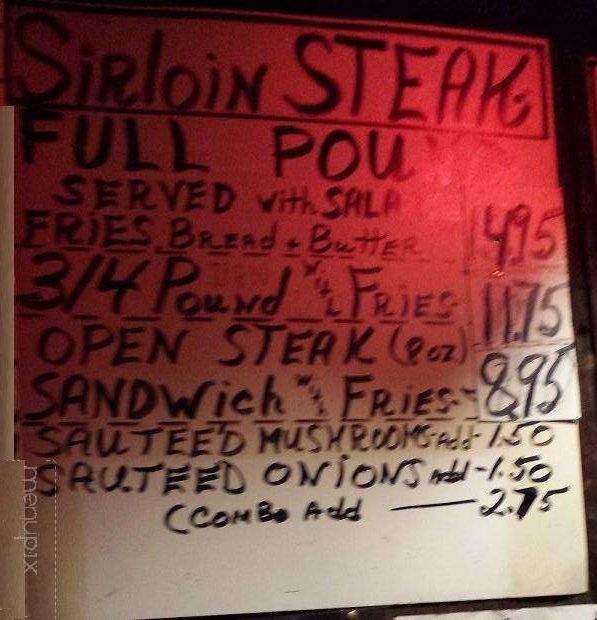 Sirloin STEAK
FULL POU
SERVED with SALA
FRIES BREAd + BuTTER 4.95
3/4 Pound with FRIES 11.75
OPEN STEAK (8oz)
SANDWich w/ FRiES 8.95
SAUTEED MUSHROOMS Add - 1.50
SAUTEED ONiONS Add - 1.50
(COMBO Add — 2.75
menupix